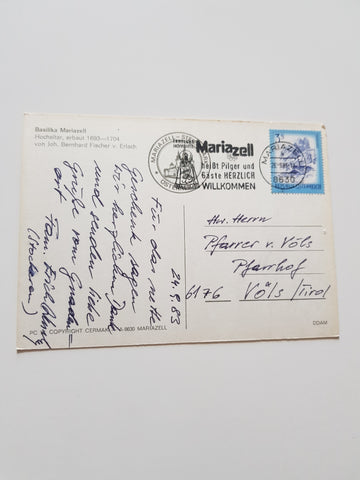 Basilika Mariazell
Hochaltar, erbaut 1693—1704
von Joh. Bernhard Fischer v. Erlach
MARIAZELL
ÖSTERREICH
Mariazell
heißt Pilger und
Gäste HERZLICH
WILLKOMMEN
3S
MARIAZELL
8630
24.9.83
Für das nette
Geschenk sagen
wir herzlichen Dank
und senden liebe
Grüße vom Gnaden-
ort
Fam.
Hw. Herrn
Pfarrer v. Völs
Pfarrhof
6176 Völs/Tirol
COPYRIGHT CERMAK, A-8630 MARIAZELL